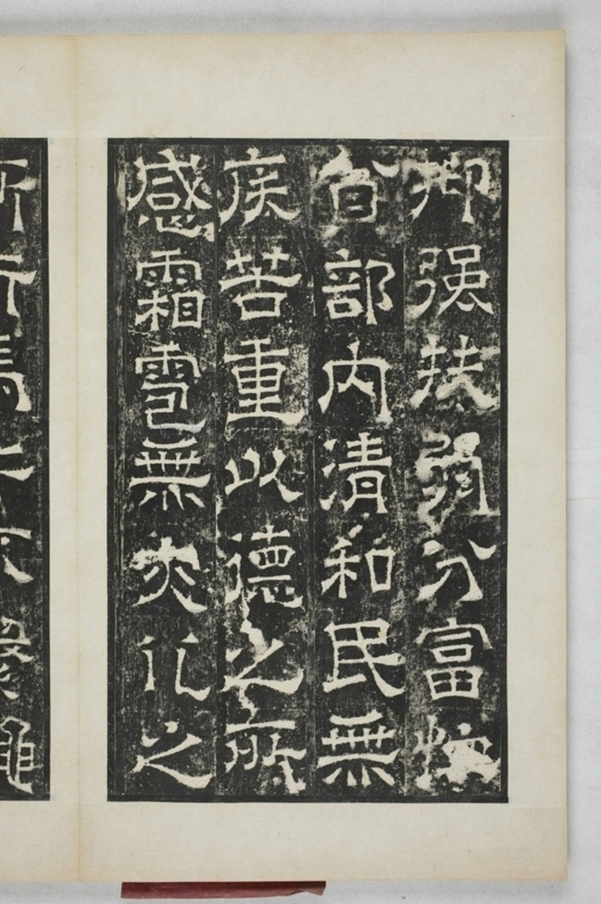 抑强扶弱分富
部内清和民無
疾苦重以德之所
感霜雹無灾化之